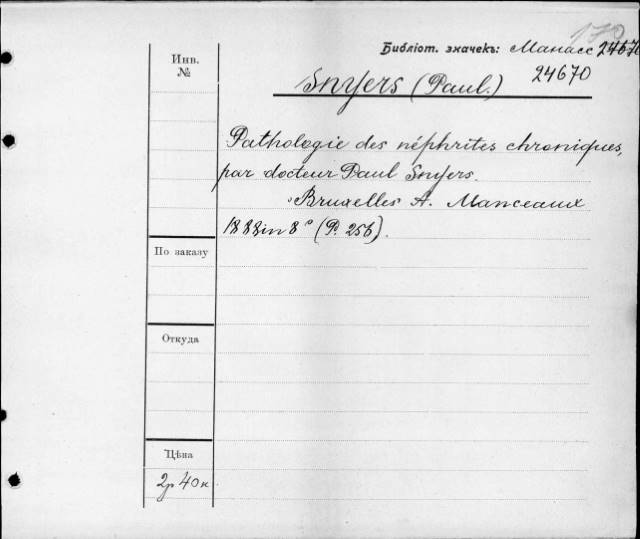 170
Библіот. значекъ: Манасс 24670
24670
Инв.
№
Snyers (Paul.)
Pathologie des néphrites chroniques,
par docteur Paul Snyers.
Bruxelles A. Manceaux
1888 in 8° (P. 256).
По заказу
Откуда
Цѣна
2р 40к